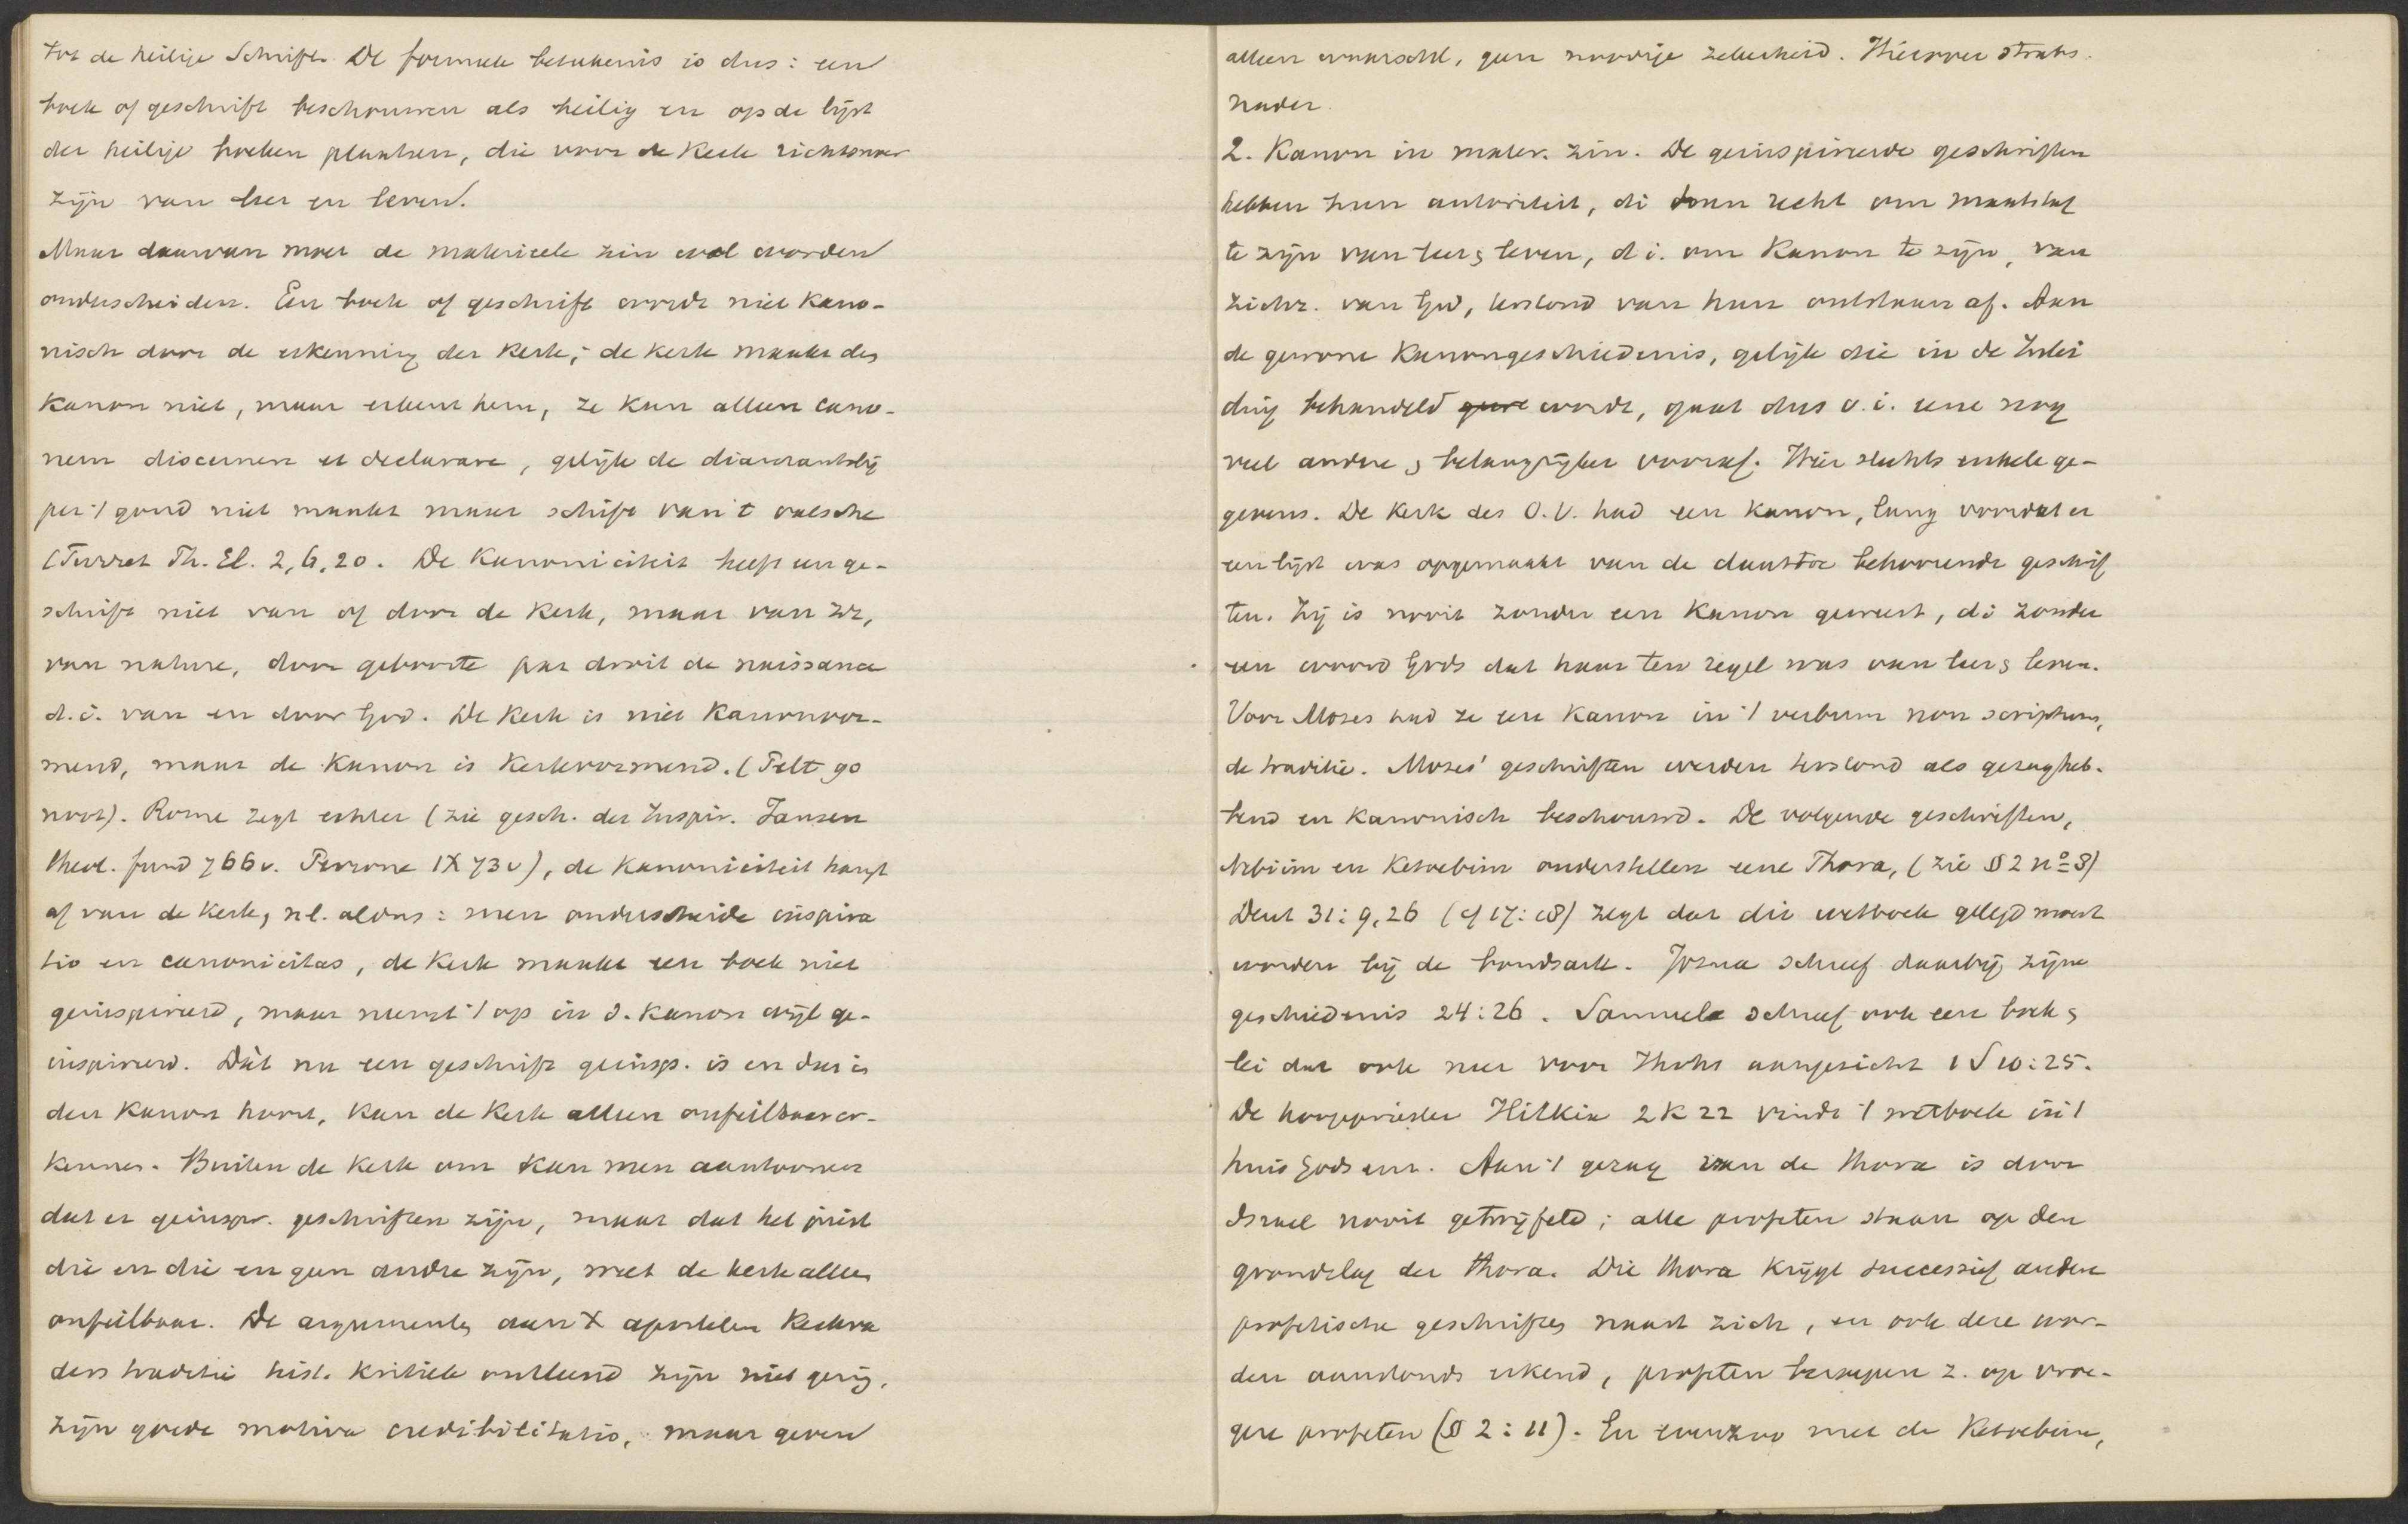 tot de heilige Schrift. De formeele beteekenis is dus: een
boek of geschrift beschouwen als heilig en op de lijst
der heilige boeken plaatsen, die voor de Kerk richtsnoer
zijn van leer en leven.
Maar daarvan moet de materieele zin wel worden
onderscheiden. Een boek of geschrift wordt niet kano-
nisch door de erkenning der Kerk; de kerk maakt den
Kanon niet, maar erkent hem, ze kan alleen cano-
nem discernere et declarare, gelijk de diamantslij
per 't goud niet maakt maar schift van 't valsche
(Turret Th. El. 2, 6, 20. De Kanoniciteit heeft een ge-
schrift niet van of door de Kerk, maar van zz,
van nature, door geboorte par droit de naissance
d.i. van en door God. De Kerk is niet Kanonvor-
mend, maar de Kanon is Kerkvormend. (Pelt 90
noot). Rome zegt echter (zie gesch. der Inspir. Jansen
theol. fund 766v. Perrone IX 73v), de Kanoniciteit hangt
af van de Kerk, nl. aldus: men onderscheide inspira
tio en canonicitas, de Kerk maakt een boek niet
geinspireerd, maar neemt 't op in d. Kanon wijl ge-
inspireerd. Dàt nu een geschrift geinsp. is en dus in
den Kanon hoort, kan de Kerk alleen onfeilbaar er-
kennen. Buiten de Kerk om kan men aantoonen
dat er geinspir. geschriften zijn, maar dat het juist
die en die en geen andre zijn, weet de kerk alleen
onfeilbaar. De argumenten aan X apostelen Kerkva
ders traditie hist. kritiek ontleend zijn niet genoeg,
zijn goede motiva credibilitatis, maar geven
alleen waarschl, geen noodige zekerheid. Hierover straks
nader.
2. Kanon in mater. zin. De geinspireerde geschriften
hebben hun autoriteit, di hun recht om maatstaf
te zijn van leer & leven, d.i. om Kanon te zijn, van
zichz. van God, terstond van hun ontstaan af. Aan
de gewone Kanongeschiedenis, gelijk die in de Inlei
ding behandeld wordt, gaat dus o.i. eene nog
veel andere & belangrijker vooraf. Hier slechts enkele ge-
gevens. De Kerk des O.V. had een kanon, lang voordat er
een lijst was opgemaakt van de daartoe behoorende geschrif
ten. Zij is nooit zonder een Kanon geweest, di zonder
een woord Gods dat haar ten regel was van leer & leven.
Voor Mozes had ze een Kanon in 't verbum non scriptum,
de traditie. Mozes' geschriften werden terstond als gezagheb-
bend en kanonisch beschouwd. De volgende geschriften,
Nebiim en Ketoebim onderstellen eene Thora, (zie § 2 no 8)
Deut 31: 9, 26 (cf 17: 18) zegt dat dit wetboek gelegd moest
worden bij de bondsark. Jozua schreef daarbij zijne
geschiedenis 24:26. Samuel schreef ook een boek &
lei dat ook neer voor Jhvhs aangezicht 1 S 10:25.
De hoogepriester Hilkia 2 K 22 vindt 't wetboek in 't
huis Gods enz. Aan 't gezag van de thora is door
Israel nooit getwijfeld; alle profeten staan op den
grondslag der thora. Die thora krijgt successief andere
profetische geschriften naast zich, en ook deze wor-
den aanstonds erkend, profeten beroepen z. op vroe-
gere profeten (§ 2: 11). En evenzoo met de Ketoebim,